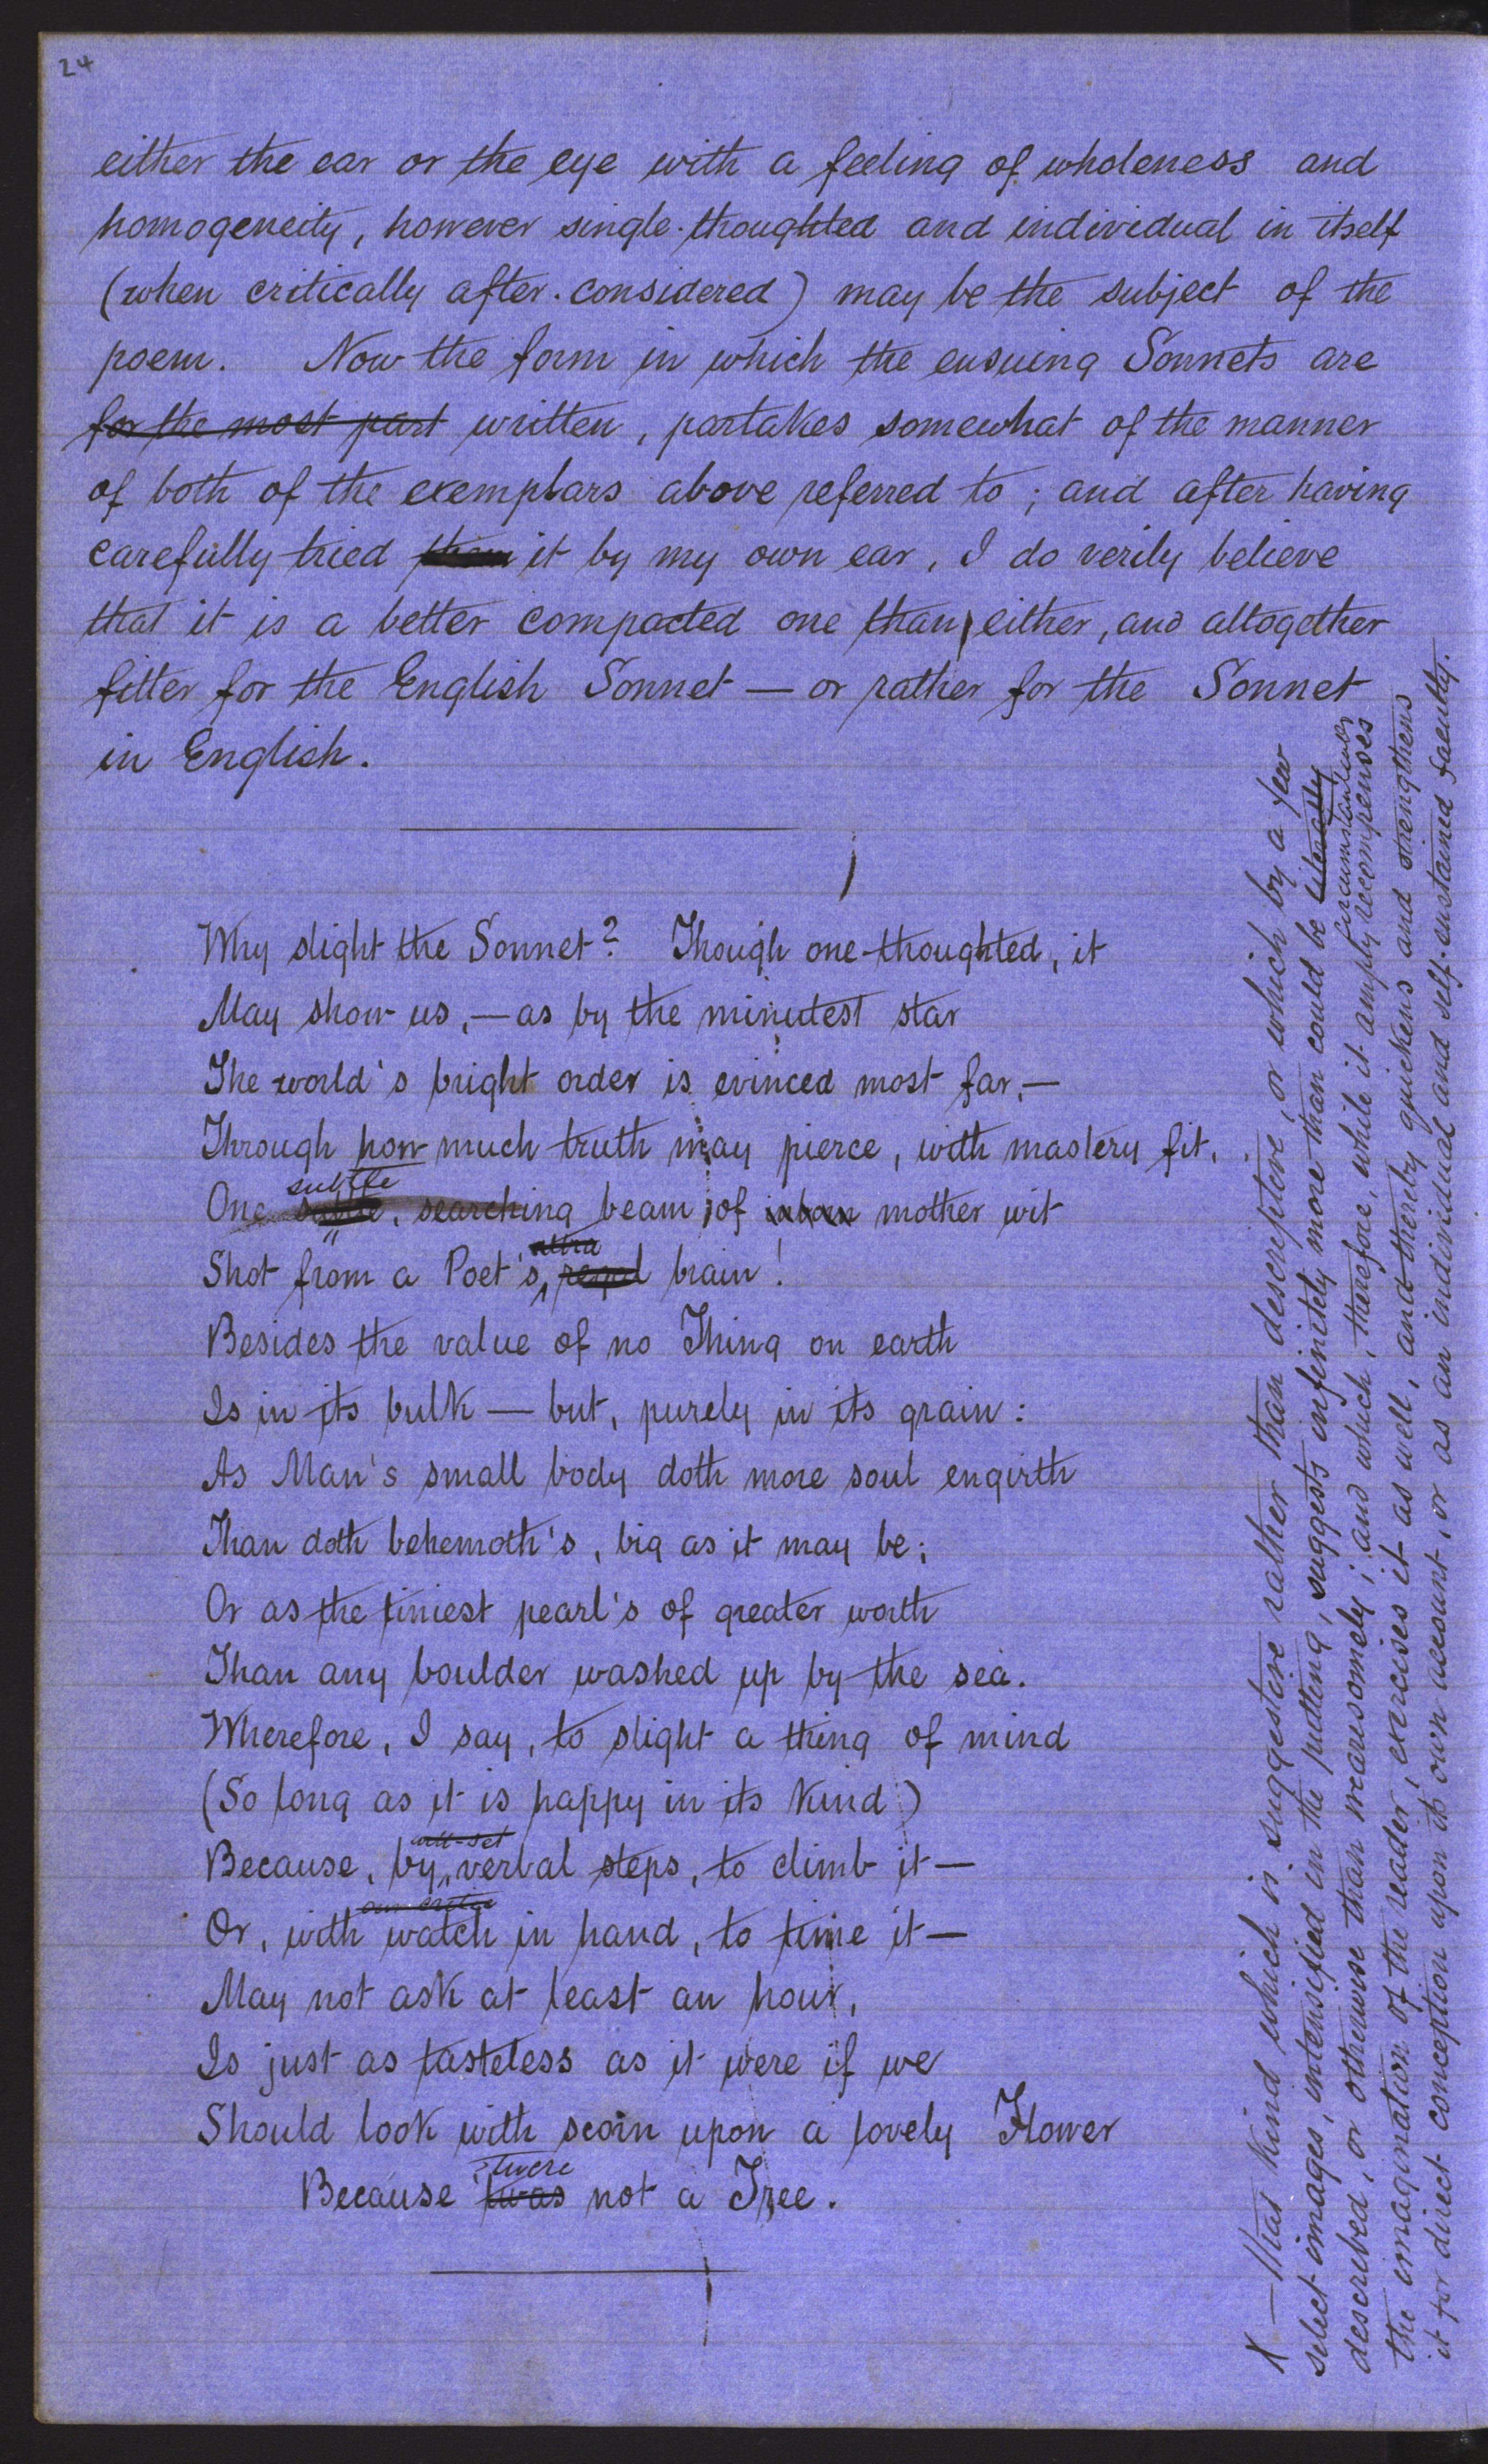 24
either the ear or the eye with a feeling of wholeness and
homogeneity, however single-thoughted and individual in itself
(when critically after-considered) may be the subject of the
poem. Now the form in which the ensuing Sonnets are
for the most part written, partakes somewhat of the manner
of both of the exemplars above referred to; and after having
carefully tried them it by my own ear, I do verily believe
that it is a better compacted one than either, and altogether
fitter for the English Sonnet — or rather for the Sonnet
in English.
Why slight the Sonnet? Though one-thoughted, it
May show us, — as by the minutest star
The world's bright order is evinced most far, —
Through how much truth may pierce, with mastery fit,
subtle
One subtle, searching beam of inborn mother wit
ultra
Shot from a Poet's brain!
Besides the value of no Thing on earth
Is in its bulk — but, purely in its grain:
As Man's small body doth more soul engirth
Than doth behemoth's, big as it may be;
Or as the tiniest pearl's of greater worth
Than any boulder washed up by the sea.
Wherefore, I say, to slight a thing of mind
(So long as it is happy in its kind)
well-set
Because, by verbal steps, to climb it —
our critic
Or, with watch in hand, to time it —
May not ask at least an hour,
Is just as tasteless as it were if we
Should look with scorn upon a lovely Flower
'twere
Because 'twas not a Tree.
X — That kind which is suggestive rather than descriptive, or which by a few
select images, intensified in the putting, suggests infinitely more than could be literally
circumstantially
described, or otherwise than wearsomely; and which, therefore, while it amply recompenses
the imagination of the reader, exercises it as well, and thereby quickens and strengthens
it for direct conception upon its own account, or as an individual and self-sustained faculty.